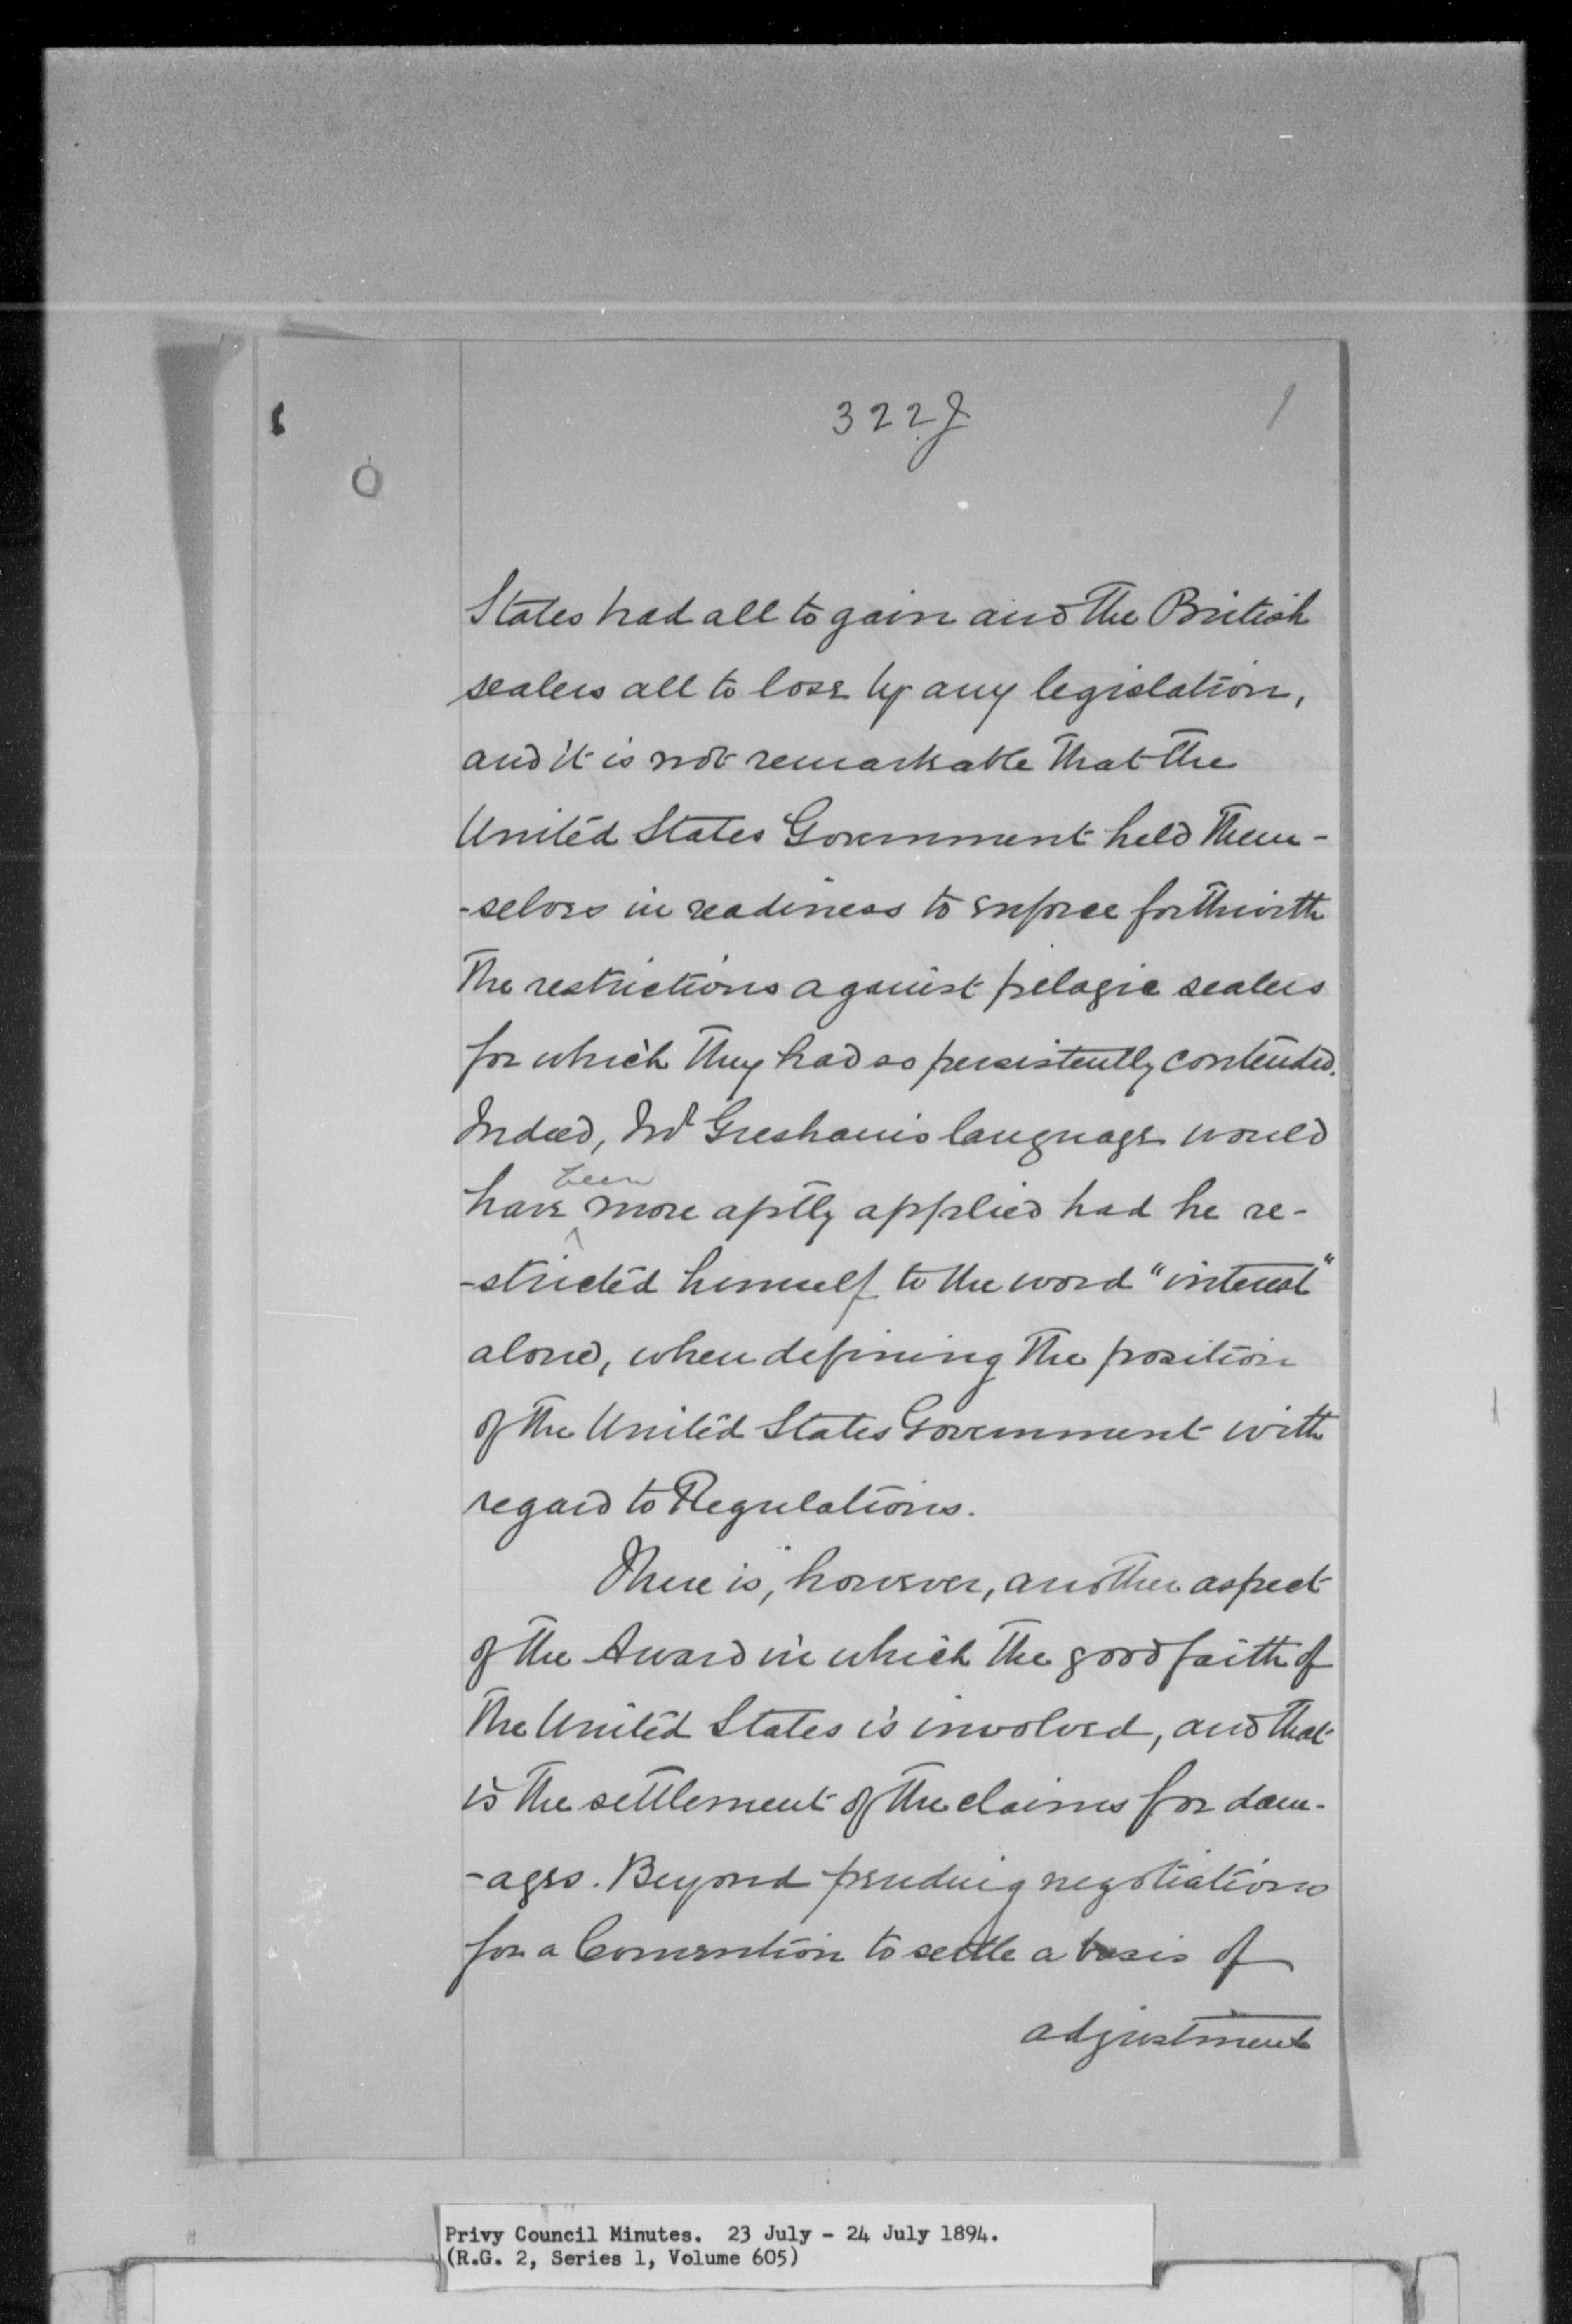 322J
States had all to gain and the British
sealers all to lose by any legislation,
and it is not remarkable that the
United States Government held them-
-selves in readiness to enforce forthwith
the restrictions against pelagic sealers
for which they had so persistently contended.
Indeed, Mr Gresham's language would
have been more aptly applied had he re-
-stricted himself to the word "interest"
alone, when defining the position
of the United States Government with
regard to Regulations.
There is, however, another aspect
of the Award in which the good faith of
the United States is involved, and that
is the settlement of the claims for dam-
-ages. Beyond pending negotiations
for a Convention to settle a basis of
adjustment
Privy Council Minutes. 23 July - 24 July 1894.
(R.G. 2, Series 1, Volume 605)